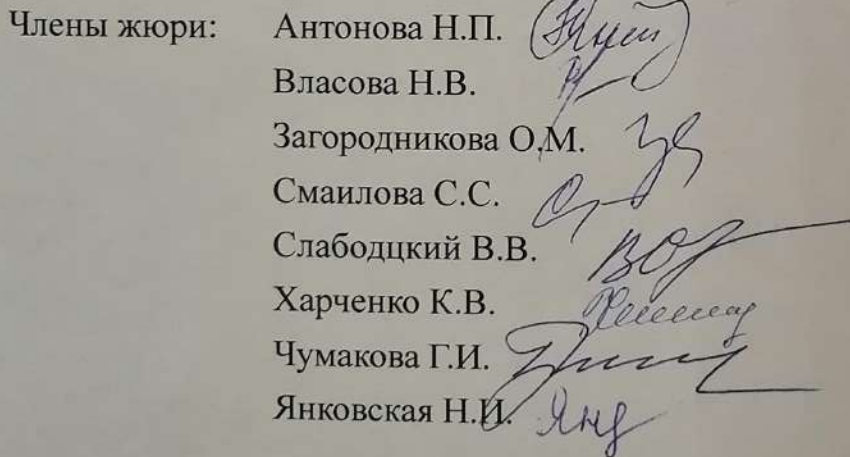 Члены жюри: Антонова Н.П.
Власова Н.В.
Загородникова О.М.
Смаилова С.С.
Слабодцкий В.В.
Харченко К.В.
Чумакова Г.И.
Янковская Н.И.